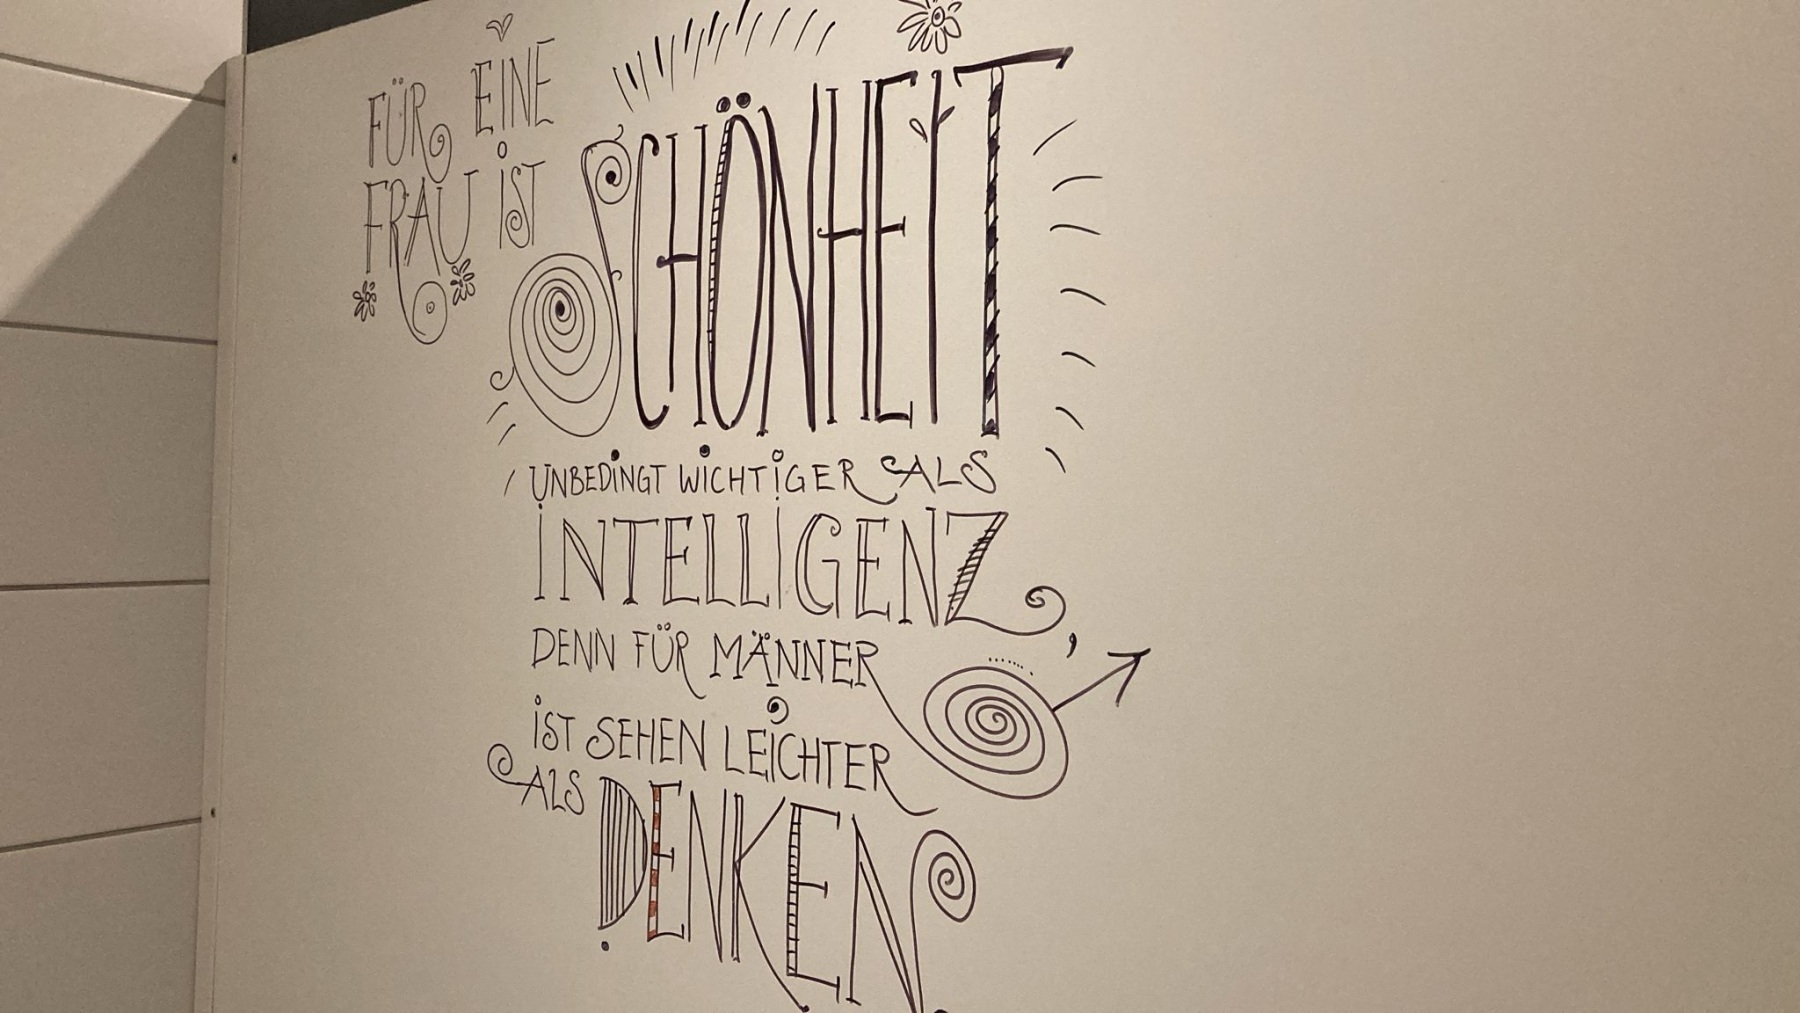 FÜR EINE
FRAU IST
SCHÖNHEIT
UNBEDINGT WICHTIGER ALS
INTELLIGENZ,
DENN FÜR MÄNNER
IST SEHEN LEICHTER
ALS DENKEN.